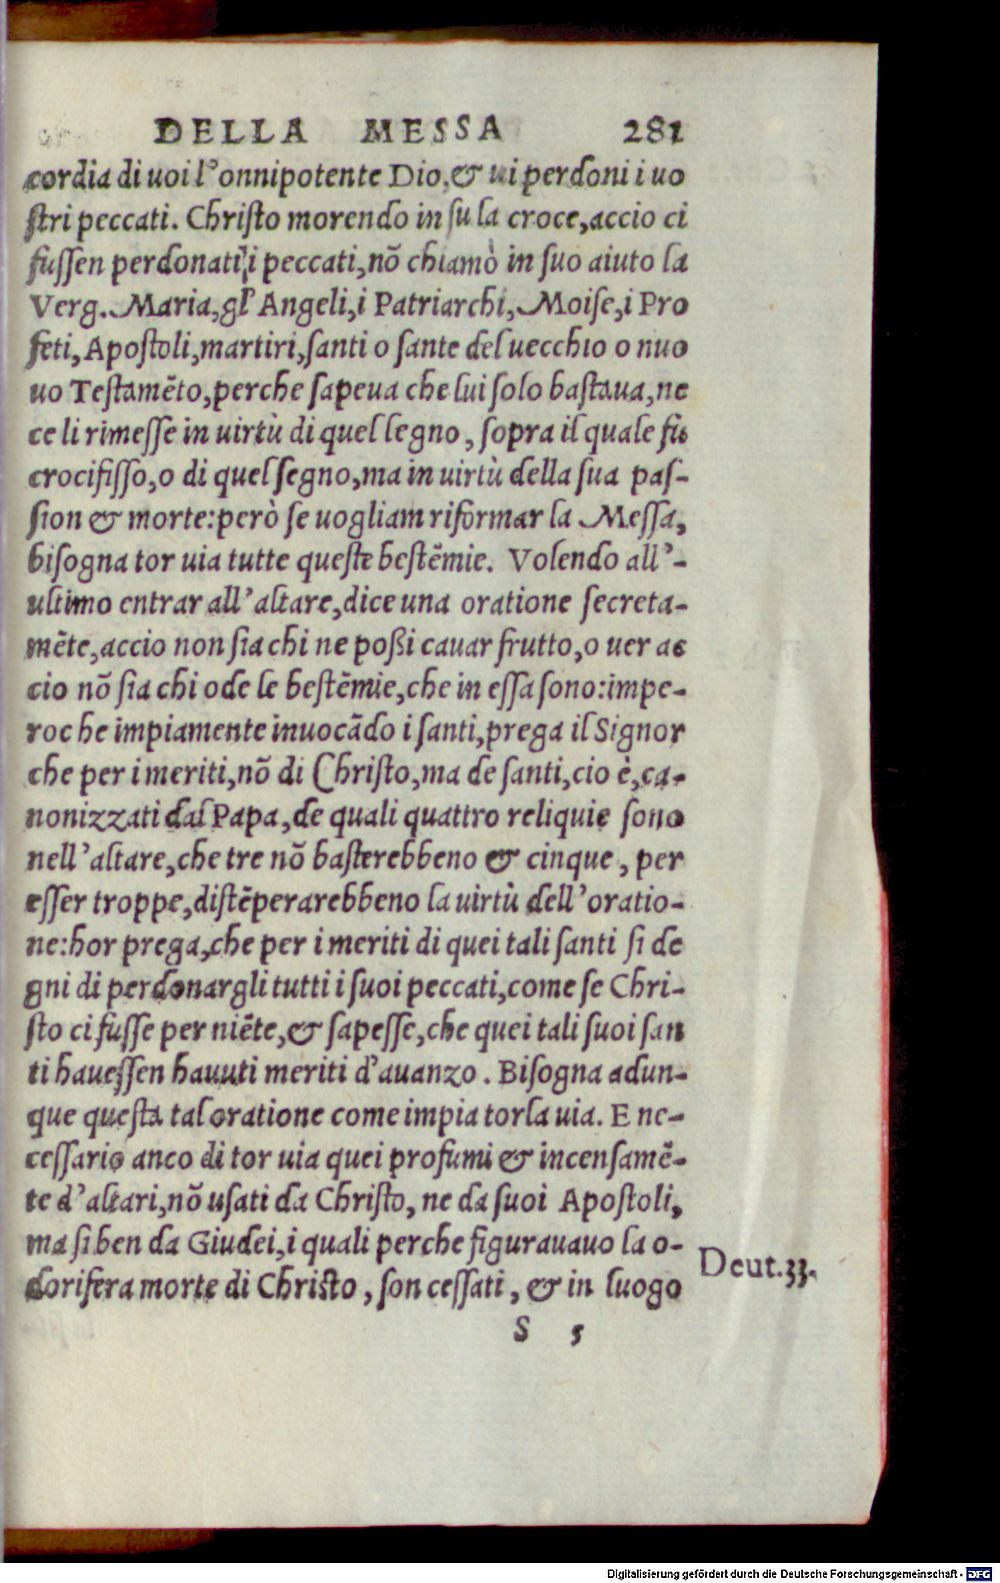 DELLA MESSA 281
cordia di uoi l'onnipotente Dio, & ui perdoni i uo
ſtri peccati. Chriſto morendo in su la croce, accio ci
fuſſen perdonati i peccati, nõ chiamò in ſuo aiuto la
Verg. Maria, gl'Angeli, i Patriarchi, Moiſe, i Pro
feti, Apoſtoli, martiri, ſanti o ſante del uecchio o nuo
uo Teſtamẽto, perche ſapeua che lui ſolo baſtaua, ne
ce li rimeſſe in uirtù di quel legno, ſopra il quale fu
crocifiſſo, o di quel ſegno, ma in uirtù della ſua paſ-
ſion & morte: però ſe uogliam riformar la Meſſa,
biſogna tor uia tutte queſte beſtẽmie. Volendo all'-
ultimo entrar all'altare, dice una oratione ſecreta-
mẽte, accio non ſia chi ne poßi cauar frutto, o uer ac
cio nõ ſia chi ode le beſtẽmie, che in eſſa ſono: impe-
roche impiamente inuocãdo i ſanti, prega il Signor
che per i meriti, nõ di Chriſto, ma de ſanti, cio è, ca-
nonizzati dal Papa, de quali quattro reliquie ſono
nell'altare, che tre nõ baſterebbeno & cinque, per
eſſer troppe, diſtẽperarebbeno la uirtù dell'oratio-
ne: hor prega, che per i meriti di quei tali ſanti ſi de
gni di perdonargli tutti i ſuoi peccati, come ſe Chri-
ſto ci fuſſe per niẽte, & ſapeſſe, che quei tali ſuoi ſan
ti haueſſen hauuti meriti d'auanzo. Biſogna adun-
que queſta tal oratione come impia torla uia. E ne-
ceſſario anco di tor uia quei profumi & incenſamẽ-
te d'altari, nõ uſati da Chriſto, ne da ſuoi Apoſtoli,
ma ſi ben da Giudei, i quali perche figurauauo la o-
dorifera morte di Chriſto, ſon ceſſati, & in luogo
Deut. 33.
S 5
Digitalisierung gefördert durch die Deutsche Forschungsgemeinschaft - DFG